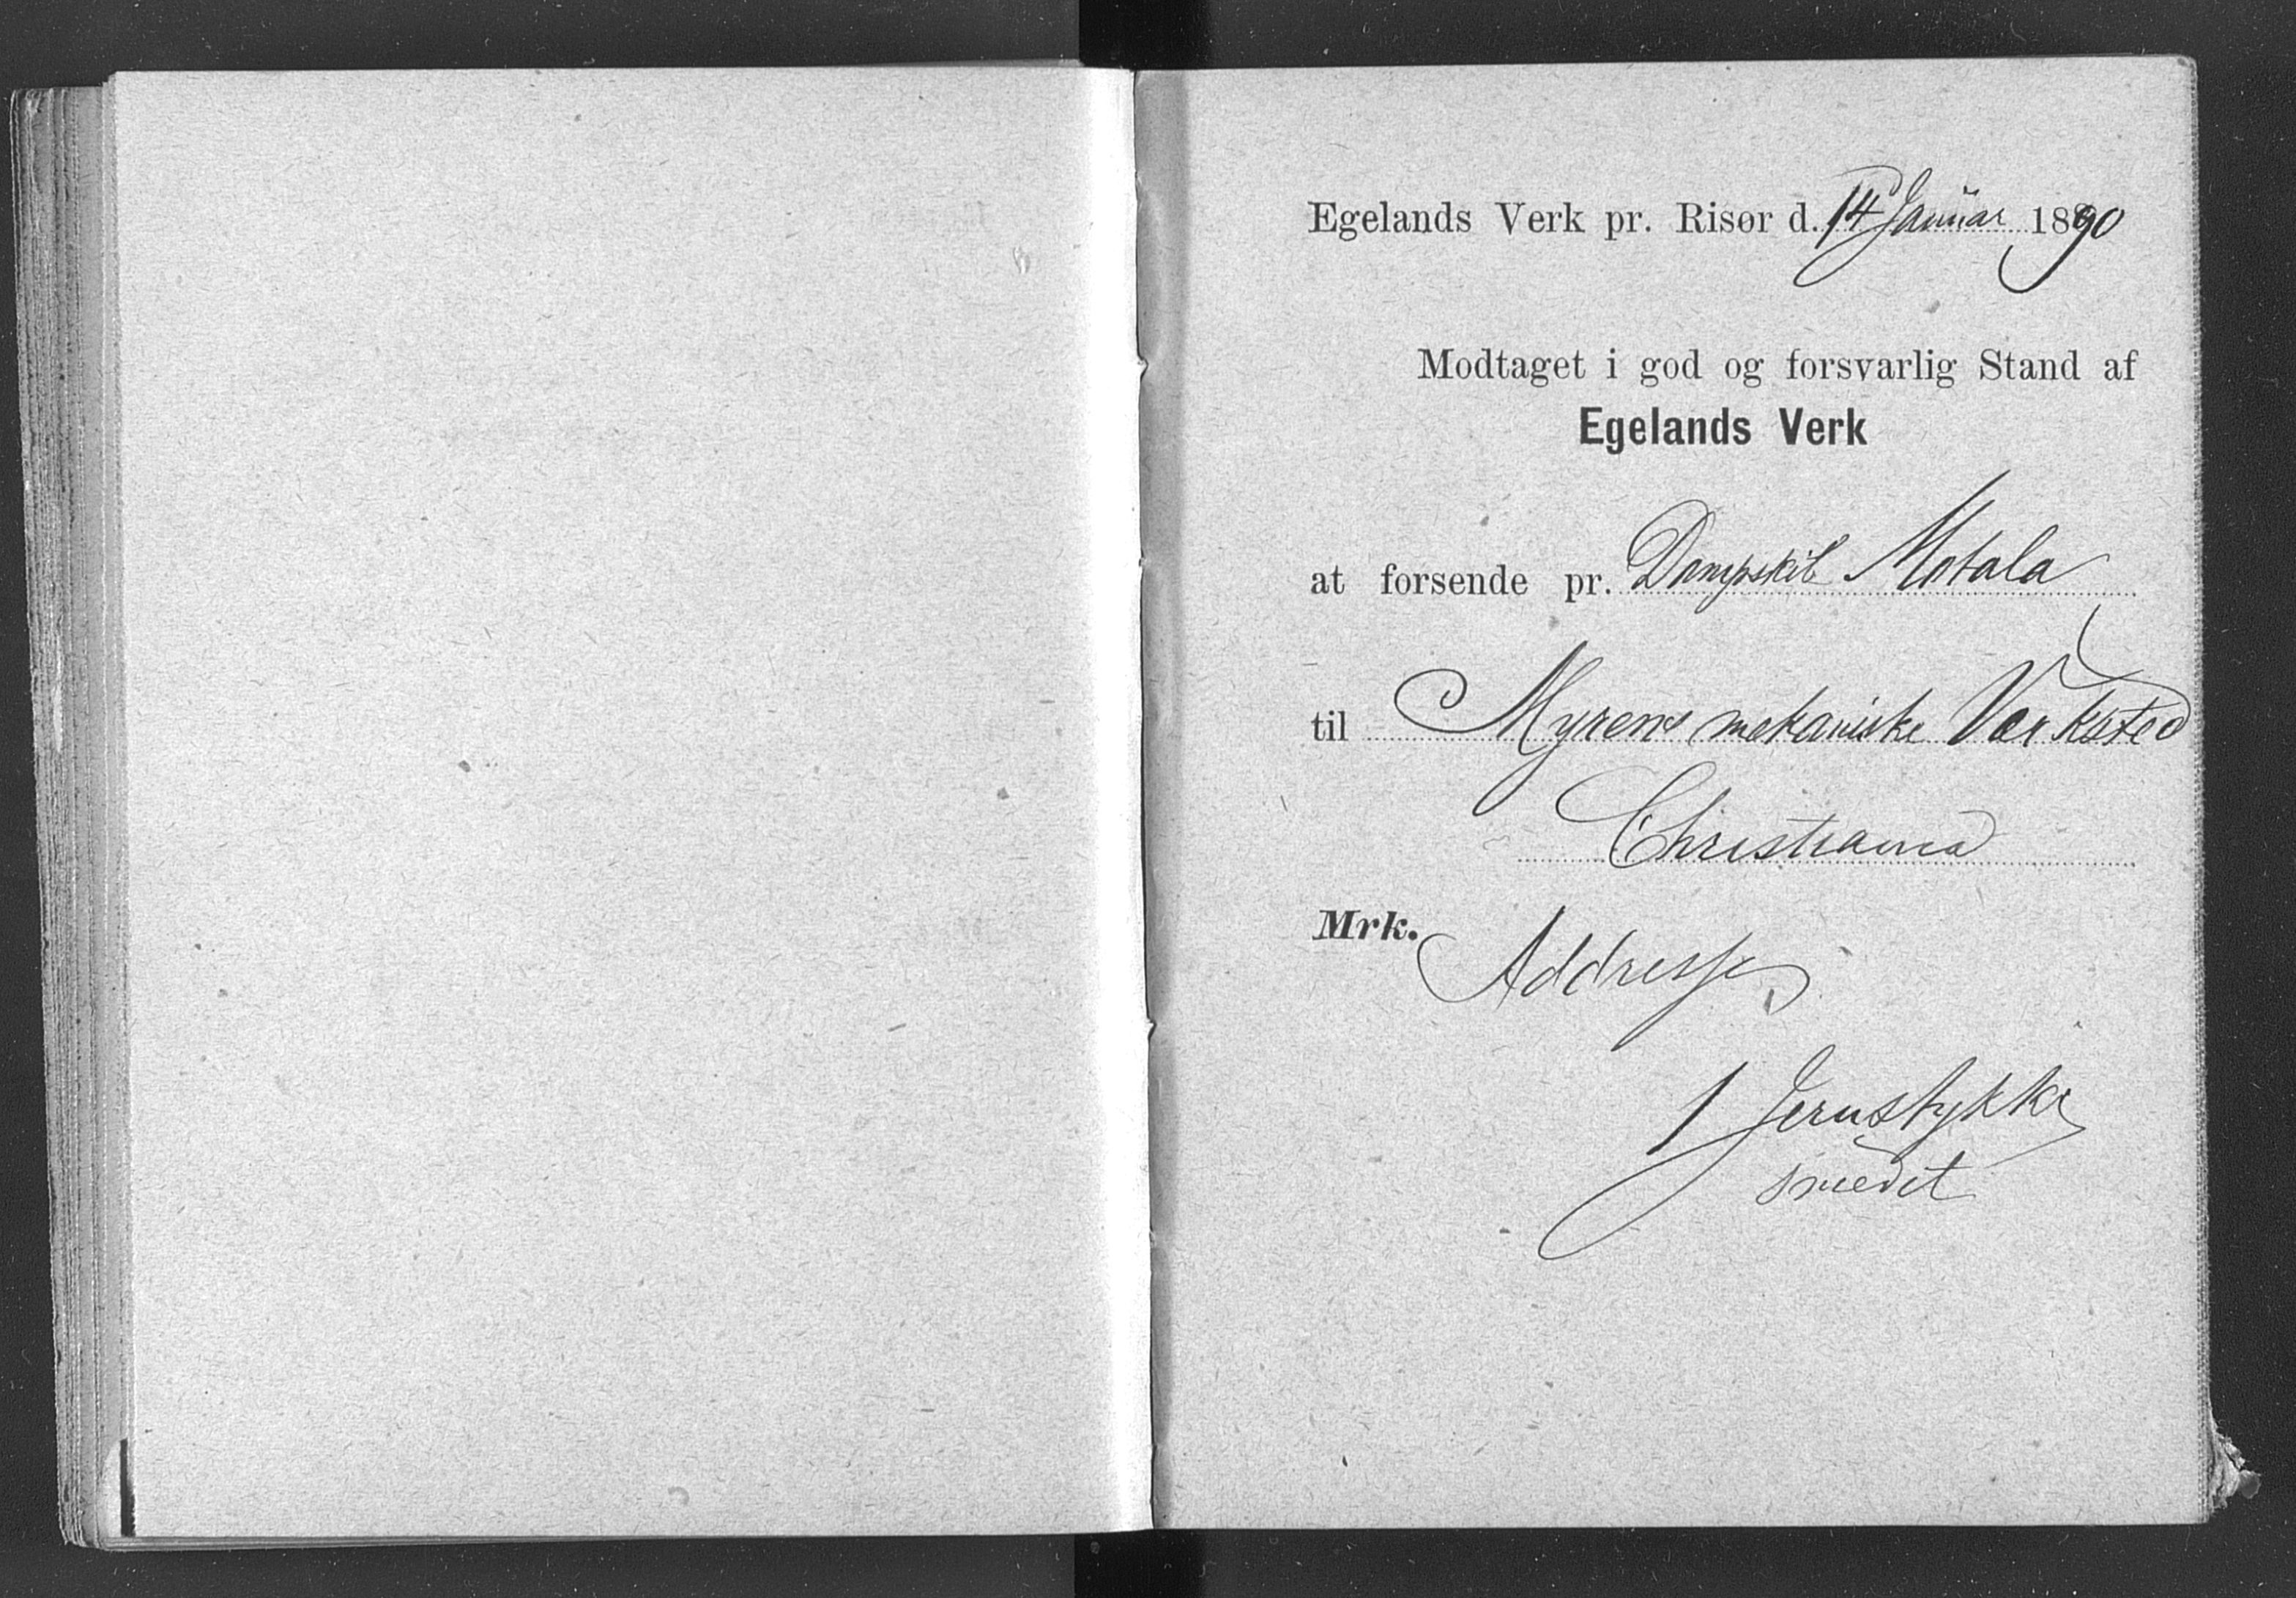 Egelands Verk pr. Risør d. 14 Januar 1890
Modtaget i god og forsvarlig Stand af
Egelands Verk
at forsende pr. Dampskib Motala
til Myrens mekaniske Værksted
Christiania
Mrk.
Addresse
1 Jernstykke
smedet